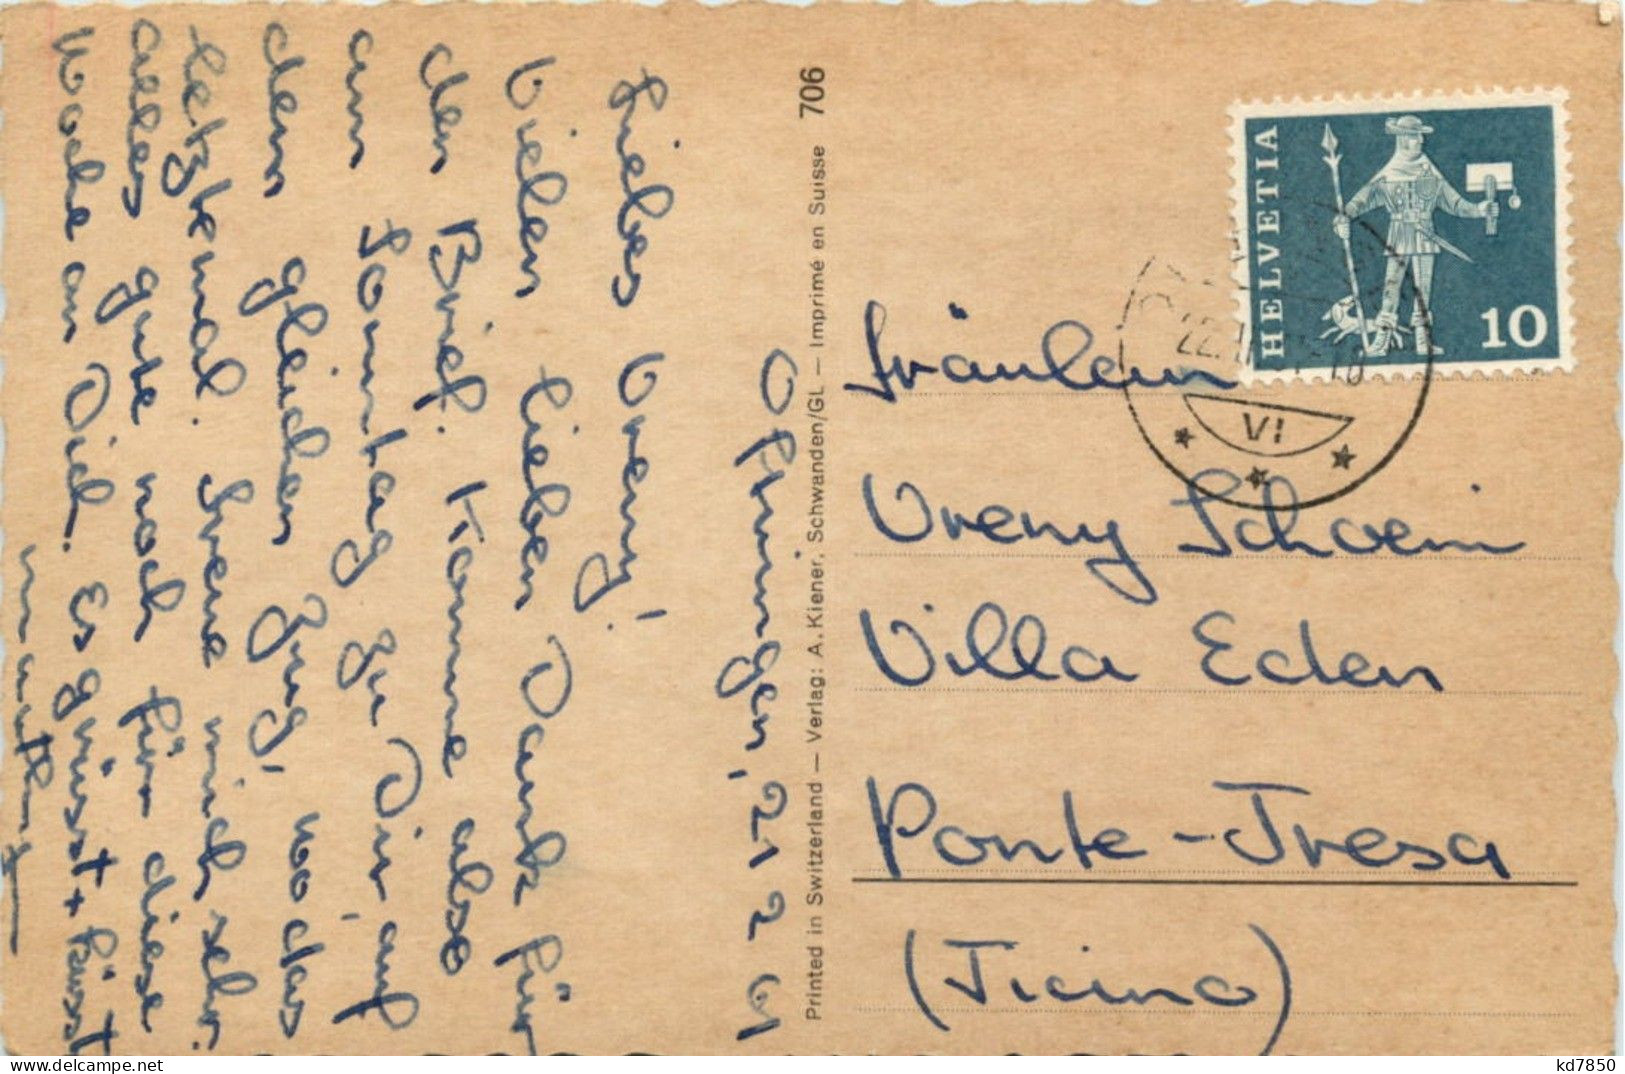 Oftringen, 21 2 61
Liebes Vreny!
Vielen lieben Dank für
den Brief. Komme also
am Sonntag zu Dir, auf
dem gleichen Zug, wo das
letztemal. Freue mich sehr.
alles gute noch für diese
Woche an Dich. Es grüsst + küsst
Printed in Switzerland — Verlag: A. Kiener, Schwanden/GL — Imprimé en Suisse 706
HELVETIA
10
22.
VI
Fräulein
Vreny Schoeni
Villa Eden
Ponte-Tresa
(Ticino)
kd7850